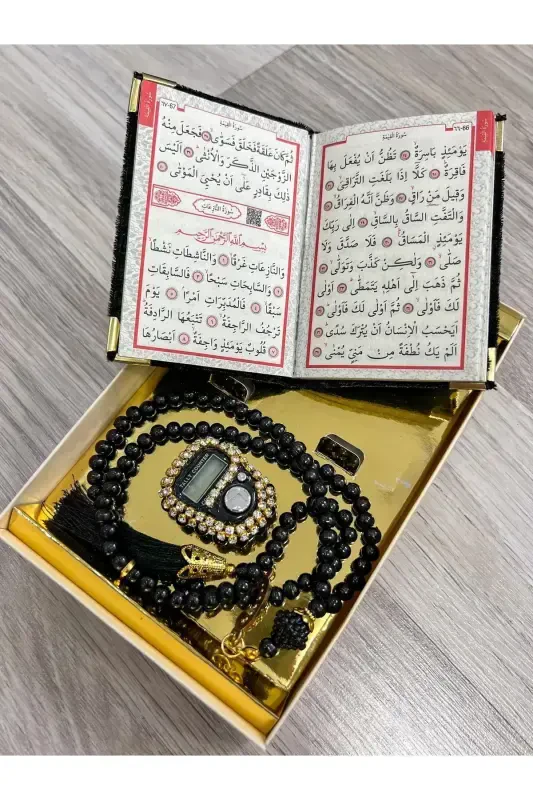 سُورَةُ الْقِيٰمَةِ
٦٦-66
يَوْمَئِذٍ بَاسِرَةٌۙ تَظُنُّ اَنْ يُفْعَلَ بِهَا
فَاقِرَةٌۜ كَلَّٓا اِذَا بَلَغَتِ التَّرَاقِيَۙ
وَق۪يلَ مَنْ رَاقٍۙ وَظَنَّ اَنَّهُ الْفِرَاقُۙ
وَالْتَفَّتِ السَّاقُ بِالسَّاقِۙ اِلٰى رَبِّكَ
يَوْمَئِذٍۨ الْمَسَاقُۜ فَلَا صَدَّقَ وَلَا
صَلّٰىۙ وَلٰكِنْ كَذَّبَ وَتَوَلّٰىۙ
ثُمَّ ذَهَبَ اِلٰٓى اَهْلِه۪ يَتَمَطّٰىۜ اَوْلٰى
لَكَ فَاَوْلٰىۙ ثُمَّ اَوْلٰى لَكَ فَاَوْلٰىۜ
اَيَحْسَبُ الْاِنْسَانُ اَنْ يُتْرَكَ سُدًىۜ
اَلَمْ يَكُ نُطْفَةً مِنْ مَنِيٍّ يُمْنٰىۙ
سُورَةُ الْقِيٰمَةِ
٦٧-67
سُورَةُ الْقِيٰمَةِ
ثُمَّ كَانَ عَلَقَةً فَخَلَقَ فَسَوّٰىۙ فَجَعَلَ مِنْهُ
الزَّوْجَيْنِ الذَّكَرَ وَالْاُنْثٰىۜ اَلَيْسَ
ذٰلِكَ بِقَادِرٍ عَلٰٓى اَنْ يُحْيِيَ الْمَوْتٰى
سُورَةُ النَّازِعَاتِ
بِسْمِ اللّٰهِ الرَّحْمٰنِ الرَّح۪يمِ
وَالنَّازِعَاتِ غَرْقًاۙ وَالنَّاشِطَاتِ نَشْطًاۙ
وَالسَّابِحَاتِ سَبْحًاۙ فَالسَّابِقَاتِ
سَبْقًاۙ فَالْمُدَبِّرَاتِ اَمْرًاۢ يَوْمَ
تَرْجُفُ الرَّاجِفَةُۙ تَتْبَعُهَا الرَّادِفَةُۜ
قُلُوبٌ يَوْمَئِذٍ وَاجِفَةٌۙ اَبْصَارُهَا
TALLY COUNTER